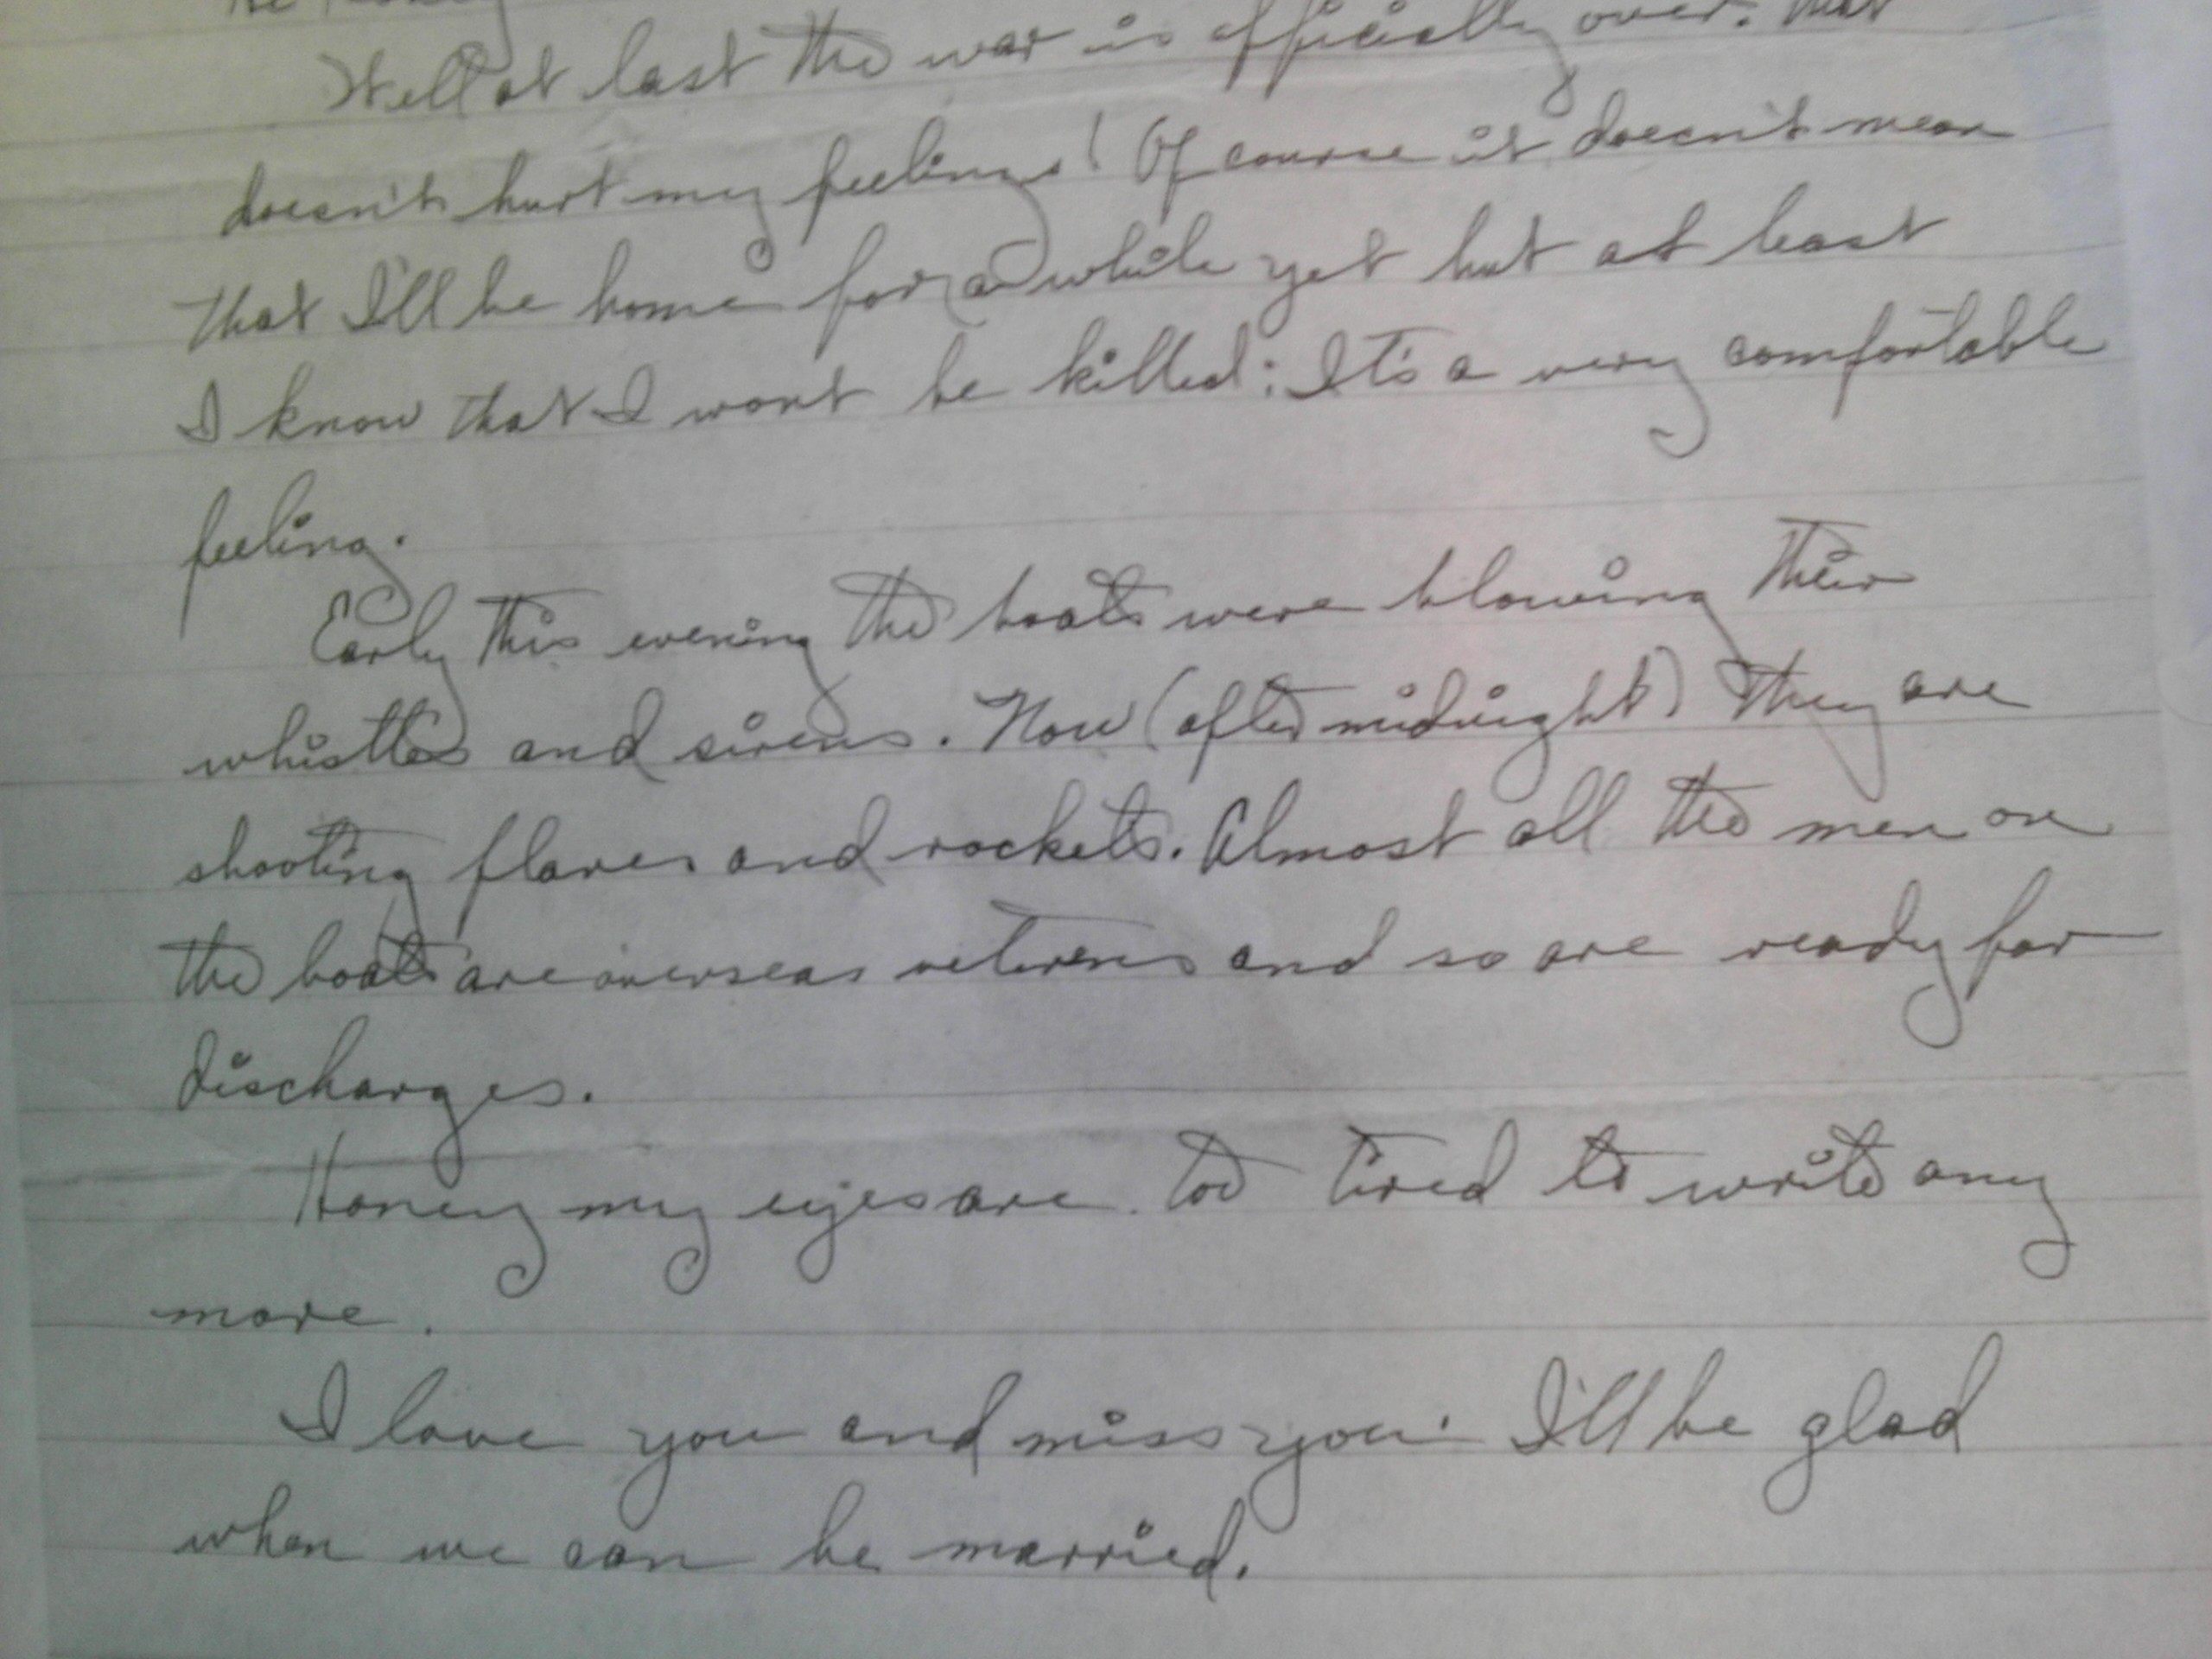 Well at last the war is officially over. That
doesn't hurt my feelings! Of course it doesn't mean
that I'll be home for a while yet but at least
I know that I wont be killed: It's a very comfortable
feeling.
Early this evening the boats were blowing their
whistles and sirens. Now (after midnight) they are
shooting flares and rockets. Almost all the men on
the boats are overseas veterens and so are ready for
discharges.
Honey my eyes are too tired to write any
more.
I love you and miss you. I'll be glad
when we can be married.